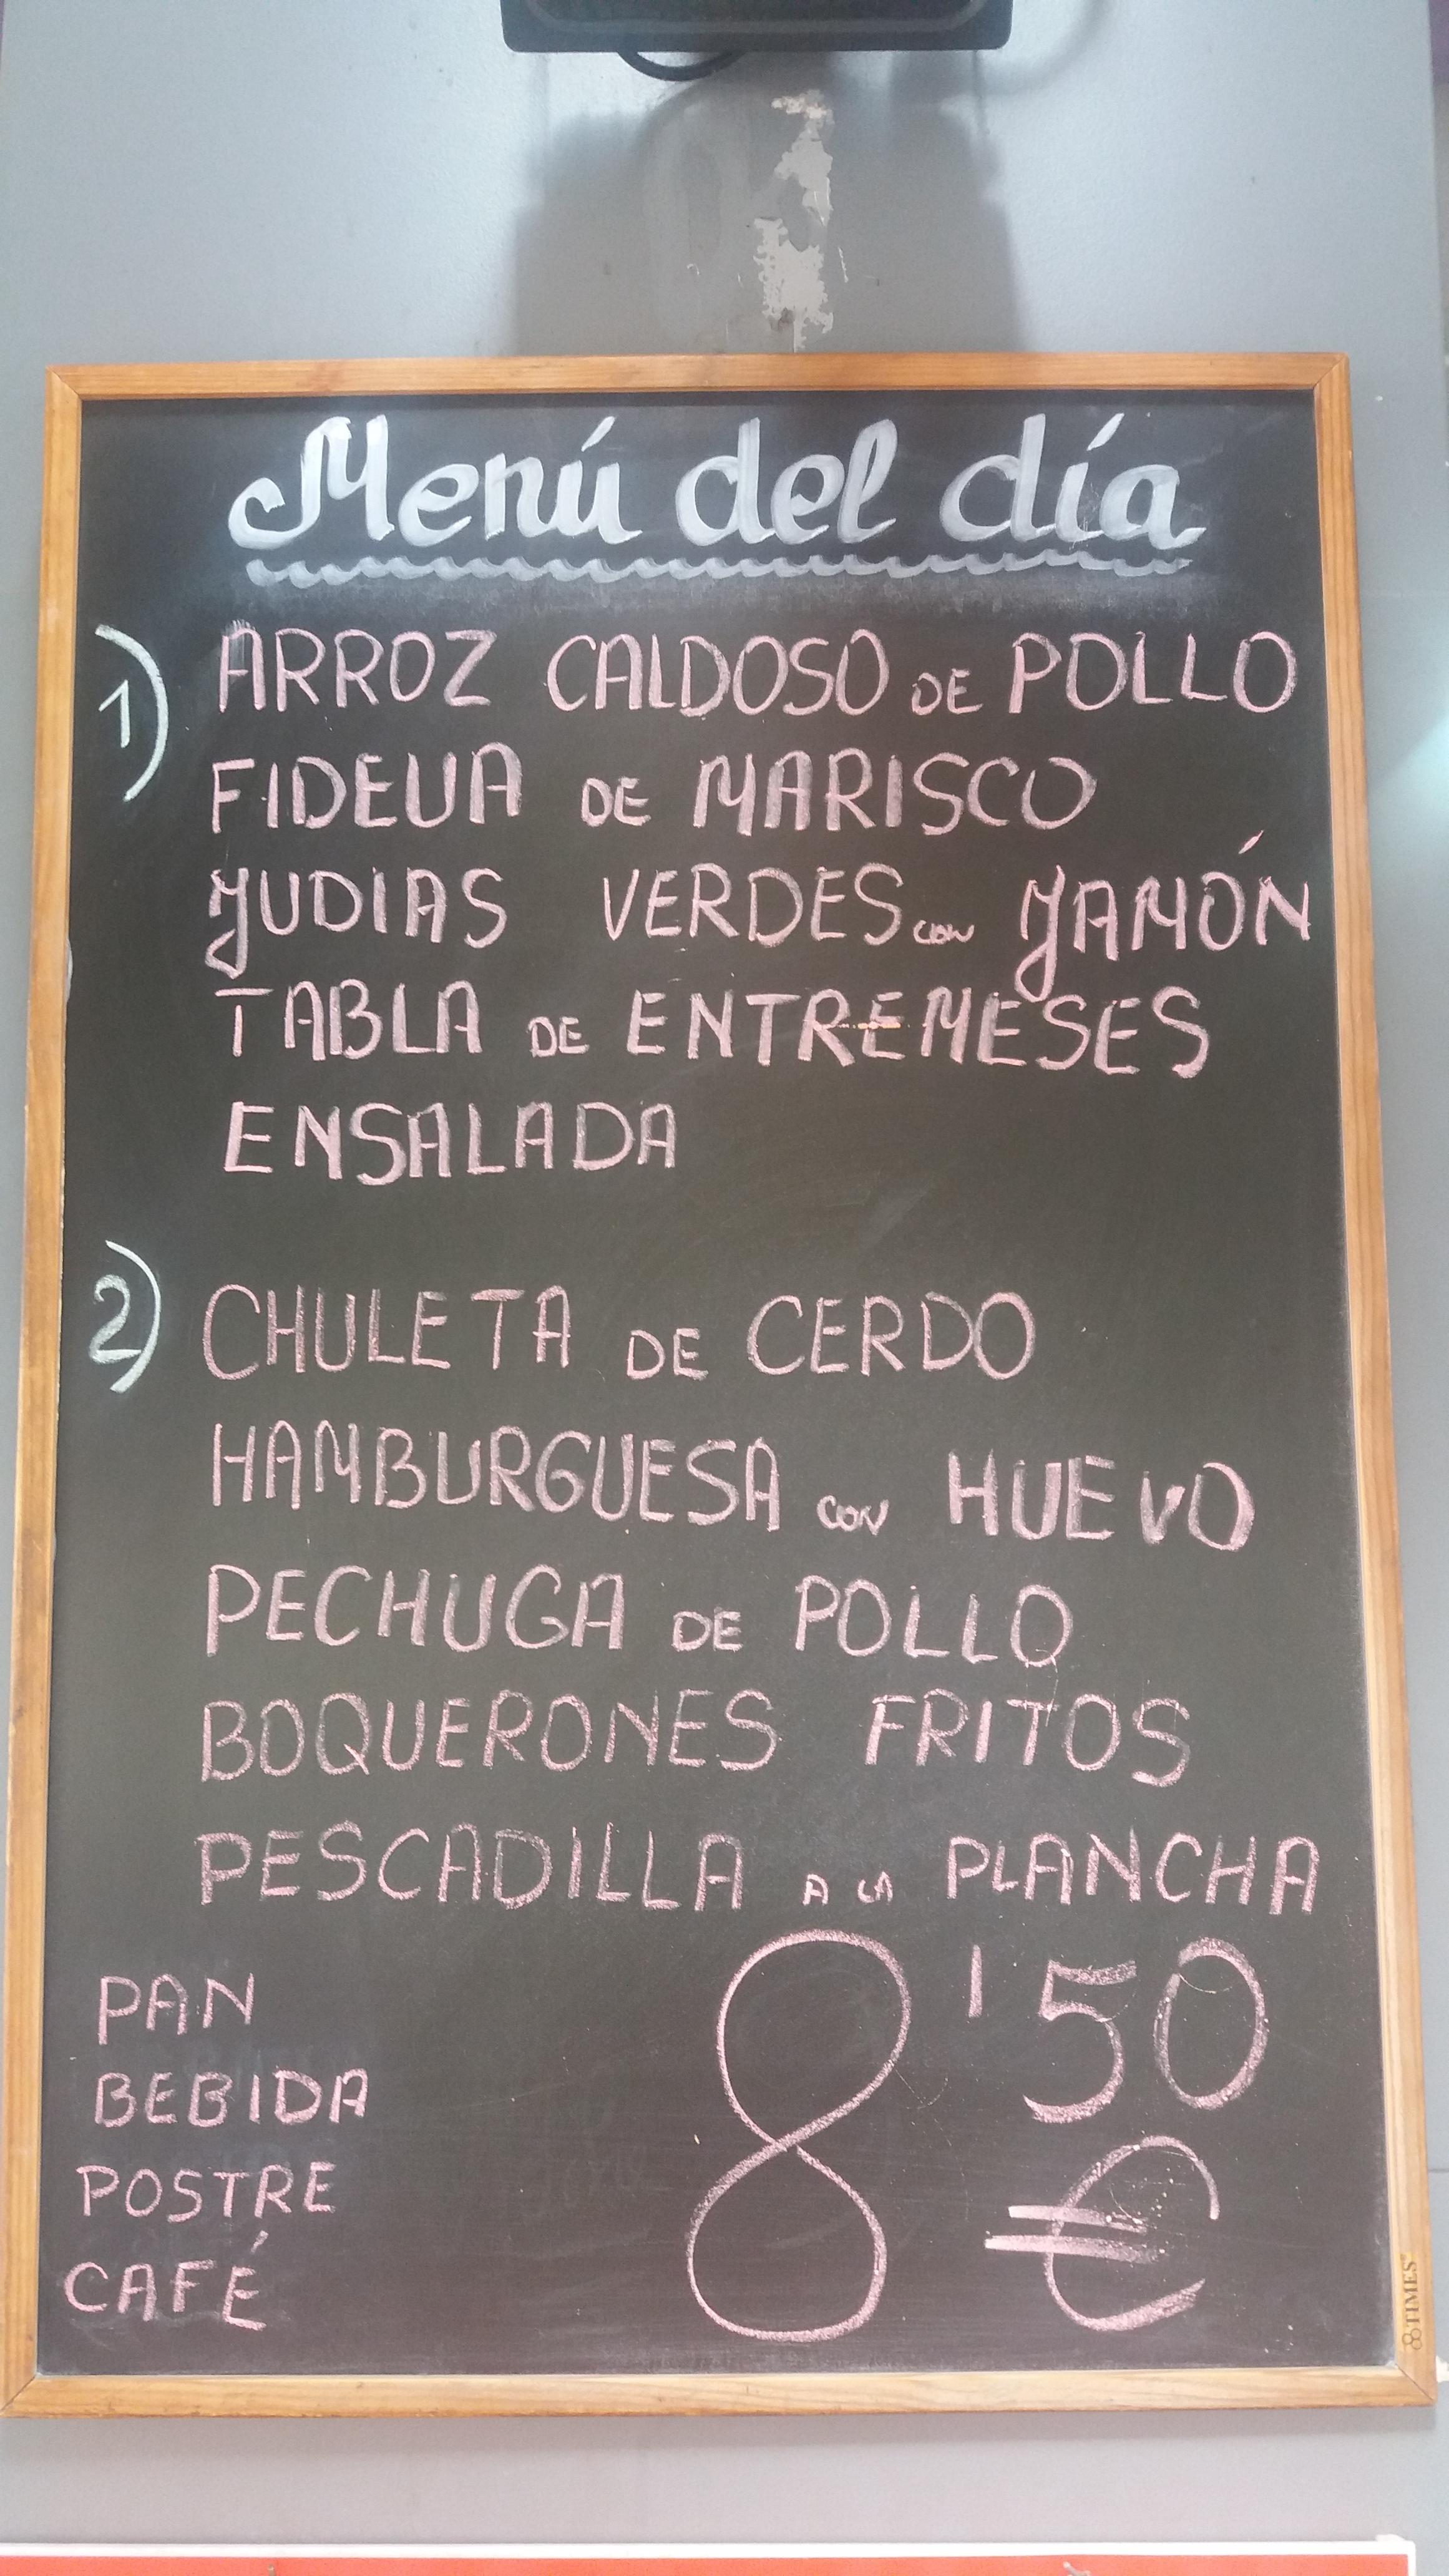 Menú del día
1) ARROZ CALDOSO DE POLLO
FIDEUA DE MARISCO
JUDIAS VERDES CON JAMÓN
TABLA DE ENTREMESES
ENSALADA
2) CHULETA DE CERDO
HAMBURGUESA CON HUEVO
PECHUGA DE POLLO
BOQUERONES FRITOS
PESCADILLA A LA PLANCHA
PAN
BEBIDA
POSTRE
CAFÉ
8'50
€
TIMES